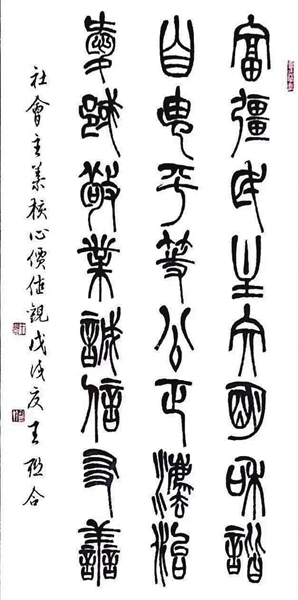 富彊民主文明和諧
自由平等公正灋治
愛國敬業誠信友善
社會主義核心價值觀戊戌夏王合